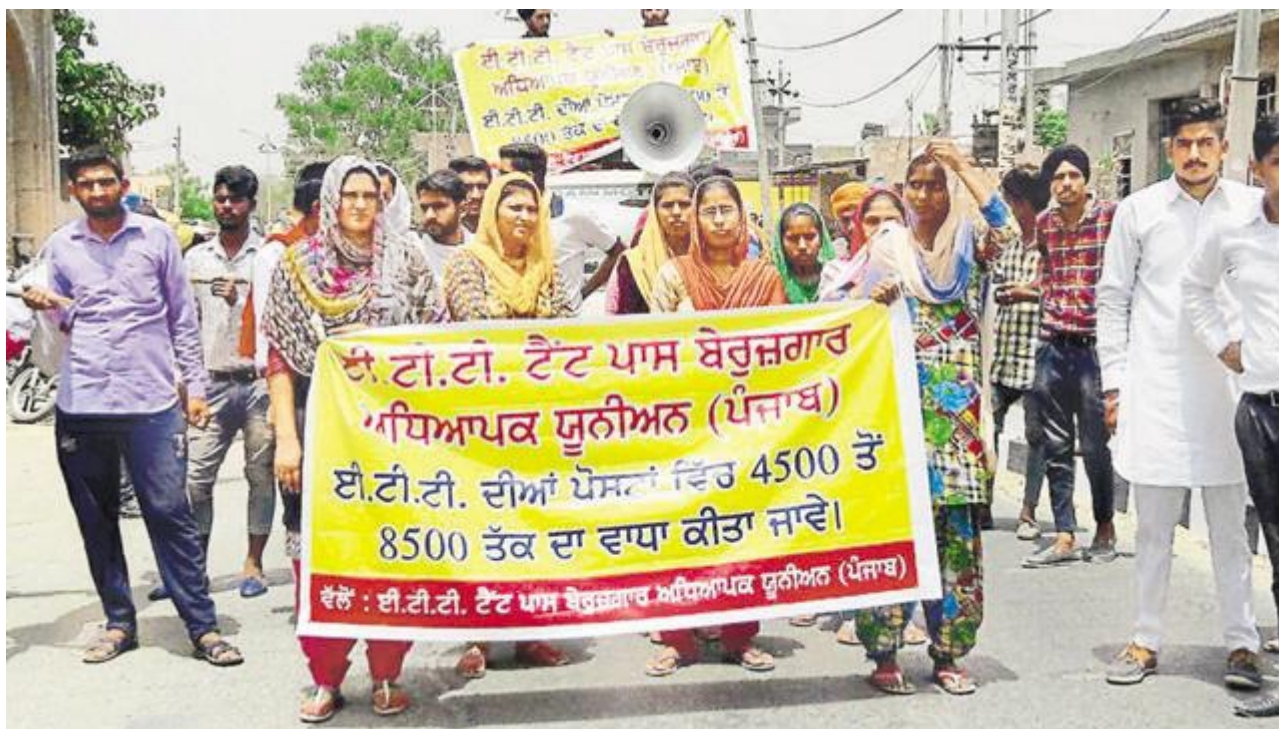 ਈ.ਟੀ.ਟੀ. ਟੈਂਟ ਪਾਸ ਬੇਰੁਜ਼ਗਾਰ
ਅਧਿਆਪਕ ਯੂਨੀਅਨ (ਪੰਜਾਬ)
ਈ.ਟੀ.ਟੀ. ਦੀਆਂ
ਤੋਂ
ਤੱਕ
ਈ.ਟੀ.ਟੀ. ਟੈਂਟ ਪਾਸ ਬੇਰੁਜ਼ਗਾਰ
ਅਧਿਆਪਕ ਯੂਨੀਅਨ (ਪੰਜਾਬ)
ਈ.ਟੀ.ਟੀ. ਦੀਆਂ ਪੋਸਟਾਂ ਵਿੱਚ 4500 ਤੋਂ
8500 ਤੱਕ ਦਾ ਵਾਧਾ ਕੀਤਾ ਜਾਵੇ।
ਵੱਲੋਂ : ਈ.ਟੀ.ਟੀ. ਟੈਂਟ ਪਾਸ ਬੇਰੁਜ਼ਗਾਰ ਅਧਿਆਪਕ ਯੂਨੀਅਨ (ਪੰਜਾਬ)